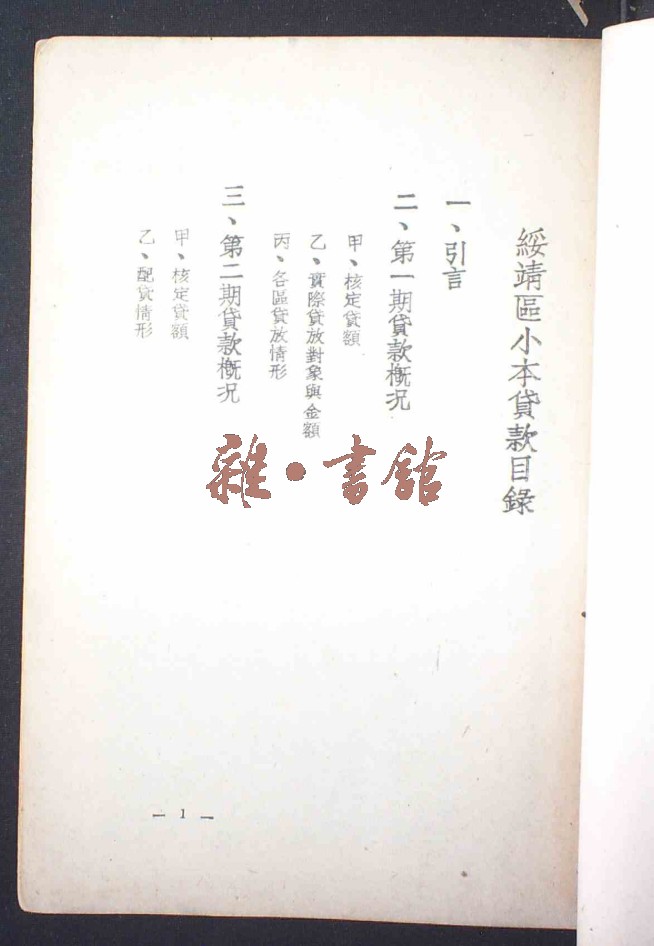 綏靖區小本貸款目錄
一、引言
二、第一期貸款概況
甲、核定貸額
乙、實際貸放對象與金額
丙、各區貸放情形
三、第二期貸款概況
甲、核定貸額
乙、配貸情形
雜•書館
— 1 —